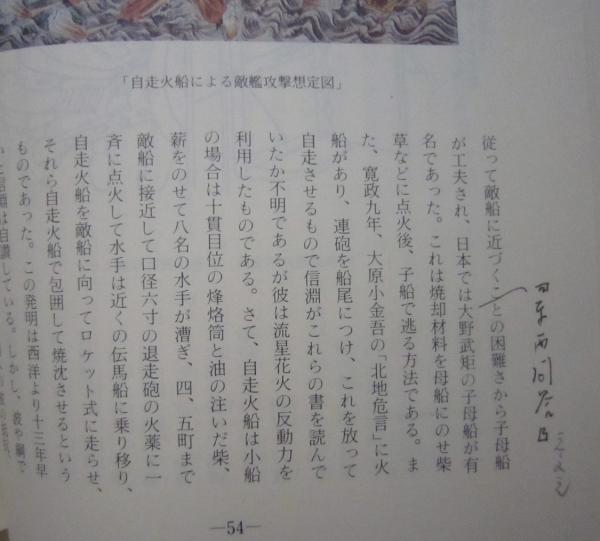 「自走火船による敵艦攻撃想定図」
従って敵船に近づくことの困難さから子母船
が工夫され、日本では大野武矩の子母船が有
名であった。これは焼却材料を母船にのせ柴
草などに点火後、子船で逃る方法である。ま
た、寛政九年、大原小金吾の「北地危言」に火
船があり、連砲を船尾につけ、これを放って
自走させるもので信淵がこれらの書を読んで
いたか不明であるが彼は流星花火の反動力を
利用したものである。さて、自走火船は小船
の場合は十貫目位の烽烙筒と油の注いだ柴、
薪をのせて八名の水手が漕ぎ、四、五町まで
敵船に接近して口径六寸の退走砲の火薬に一
斉に点火して水手は近くの伝馬船に乗り移り、
自走火船を敵船に向ってロケット式に走らせ、
それら自走火船で包囲して焼沈させるという
ものであった。この発明は西洋より十三年早
いと信淵は自讃している。しかし、波や綱で
—54—